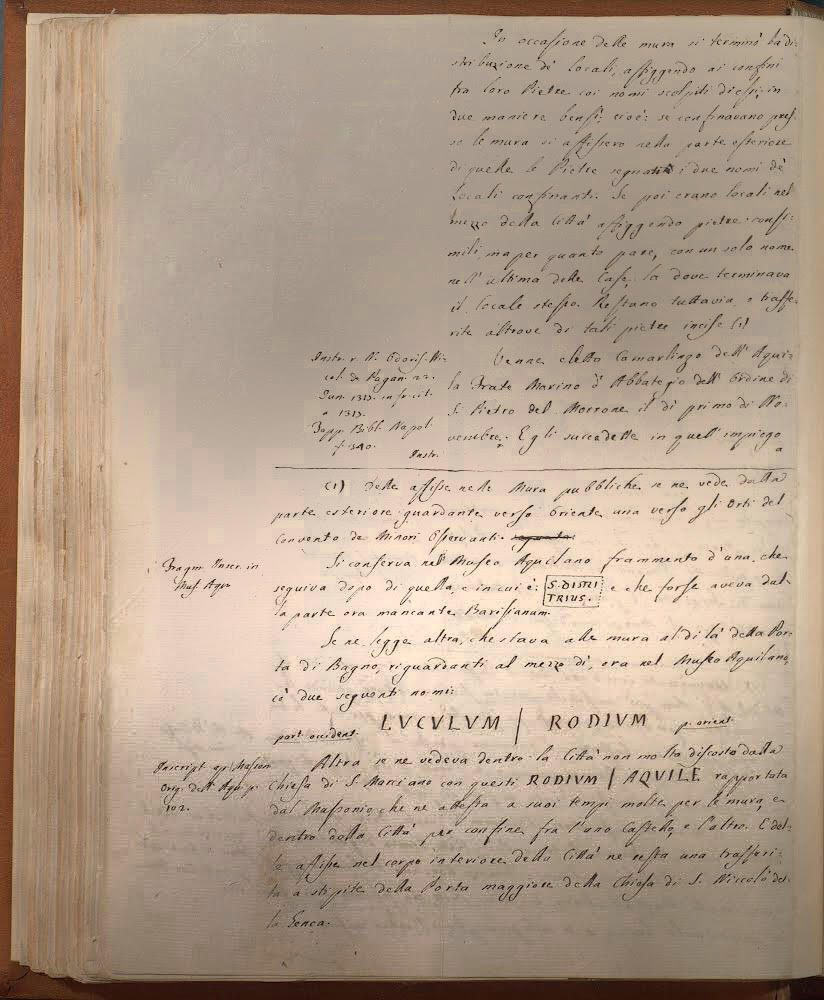 In occasione delle mura si terminò la di-
stribuzione de' Locali, affiggendo ai confini
fra loro Pietre coi nomi scolpiti di essi; in
due maniere bensì; cioè: se confinavano pres-
so le mura si affissero nella parte esteriore
di quelle le Pietre segnati i due nomi de'
Locali confinanti. Se poi erano locali nel
mezzo della Città affiggendo pietre consi-
mili, ma per quanto pare, con un solo nome
nell' ultima delle Case, la dove terminava
il Locale stesso. Restano tuttavia, o trasfe-
rite altrove di tali pietre incise (1)
Instr. r. N. Odoris. Ni-
col. de Pagan. 22.
Jun. 1313. in fr. cit.
a 1313.
Topp. Bibl. Napol.
f. 340.
Instr.
Venne eletto Camarlingo dell' Aqui-
la Frate Marino d' Abbategio dell' Ordine di
S. Pietro del Morrone il dì primo di No-
vembre. Egli succedette in quell' impiego
a
(1) Delle affisse nelle Mura pubbliche se ne vede dalla
parte esteriore guardante verso Oriente una verso gli Orti del
Convento de Minori Osservanti.
Fragm. Inscr. in
Mus. Aqu.
Si conserva nel Museo Aquilano frammento d'una, che
seguiva dopo di quella, e in cui è: S. DISTRI
TRIUS. e che forse aveva dal-
la parte ora mancante Barisianum.
Se ne legge altra, che stava alle mura al di là della Por-
ta di Bagno, riguardanti al mezzo dì, ora nel Museo Aquilano,
co' due seguenti nomi:
part. occident. LVCVLVM | RODIVM p. orient.
Inscript. ap. Masson.
Orig. dell' Aqu. p.
102.
Altra se ne vedeva dentro la Città non molto discosto dalla
Chiesa di S. Marciano con questi RODIVM | AQVILE rapportata
dal Massonio, che ne attesta a suoi tempi molte per le mura, e
dentro della Città per confine fra l'uno Castello, e l'altro. E del-
le affisse nel corpo interiore della Città ne resta una trasferi-
ta a stipite della Porta maggiore della Chiesa di S. Niccolò del-
la Genca.